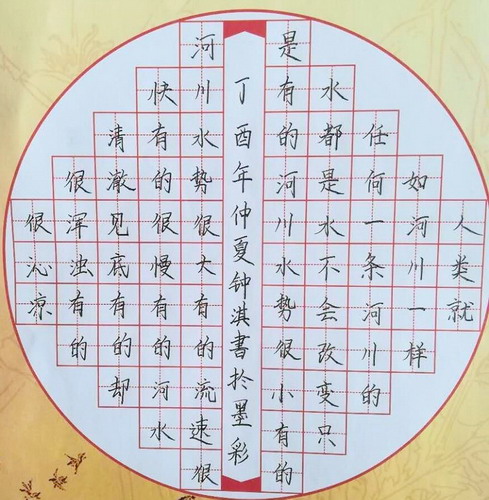 人类就
如河川一样
任何一条河川的
水都是水不会改变只
是有的河川水势很小有的
丁酉年仲夏钟淇書於墨彩
河川水势很大有的流速很
快有的很慢有的河水
清澈见底有的却
很浑浊有的
很沁凉